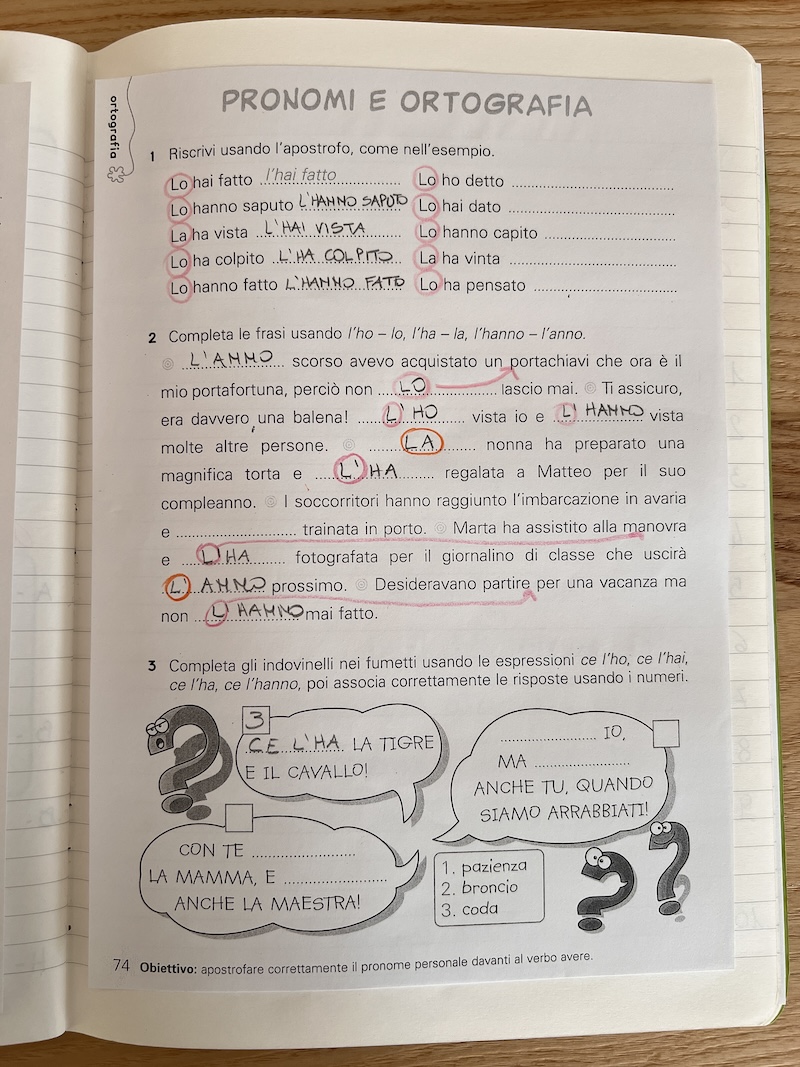 ortografia
PRONOMI E ORTOGRAFIA
1 Riscrivi usando l'apostrofo, come nell'esempio.
Lo hai fatto l'hai fatto
Lo hanno saputo L'HANNO SAPUTO
La ha vista L'HAI VISTA
Lo ha colpito L'HA COLPITO
Lo hanno fatto L'HANNO FATO
Lo ho detto ..............................
Lo hai dato ..............................
Lo hanno capito ..............................
La ha vinta ..............................
Lo ha pensato ..............................
2 Completa le frasi usando l'ho – lo, l'ha – la, l'hanno – l'anno.
L'ANNO scorso avevo acquistato un portachiavi che ora è il
mio portafortuna, perciò non LO lascio mai. Ti assicuro,
era davvero una balena! L'HO vista io e L'HANNO vista
molte altre persone. LA nonna ha preparato una
magnifica torta e L'HA regalata a Matteo per il suo
compleanno. I soccorritori hanno raggiunto l'imbarcazione in avaria
e .............................. trainata in porto. Marta ha assistito alla manovra
e L'HA fotografata per il giornalino di classe che uscirà
L'ANNO prossimo. Desideravano partire per una vacanza ma
non L'HANNO mai fatto.
3 Completa gli indovinelli nei fumetti usando le espressioni ce l'ho, ce l'hai,
ce l'ha, ce l'hanno, poi associa correttamente le risposte usando i numeri.
3
CE L'HA LA TIGRE
E IL CAVALLO!
.............................. IO,
MA ..............................
ANCHE TU, QUANDO
SIAMO ARRABBIATI!
CON TE ..............................
LA MAMMA, E ..............................
ANCHE LA MAESTRA!
1. pazienza
2. broncio
3. coda
74 Obiettivo: apostrofare correttamente il pronome personale davanti al verbo avere.